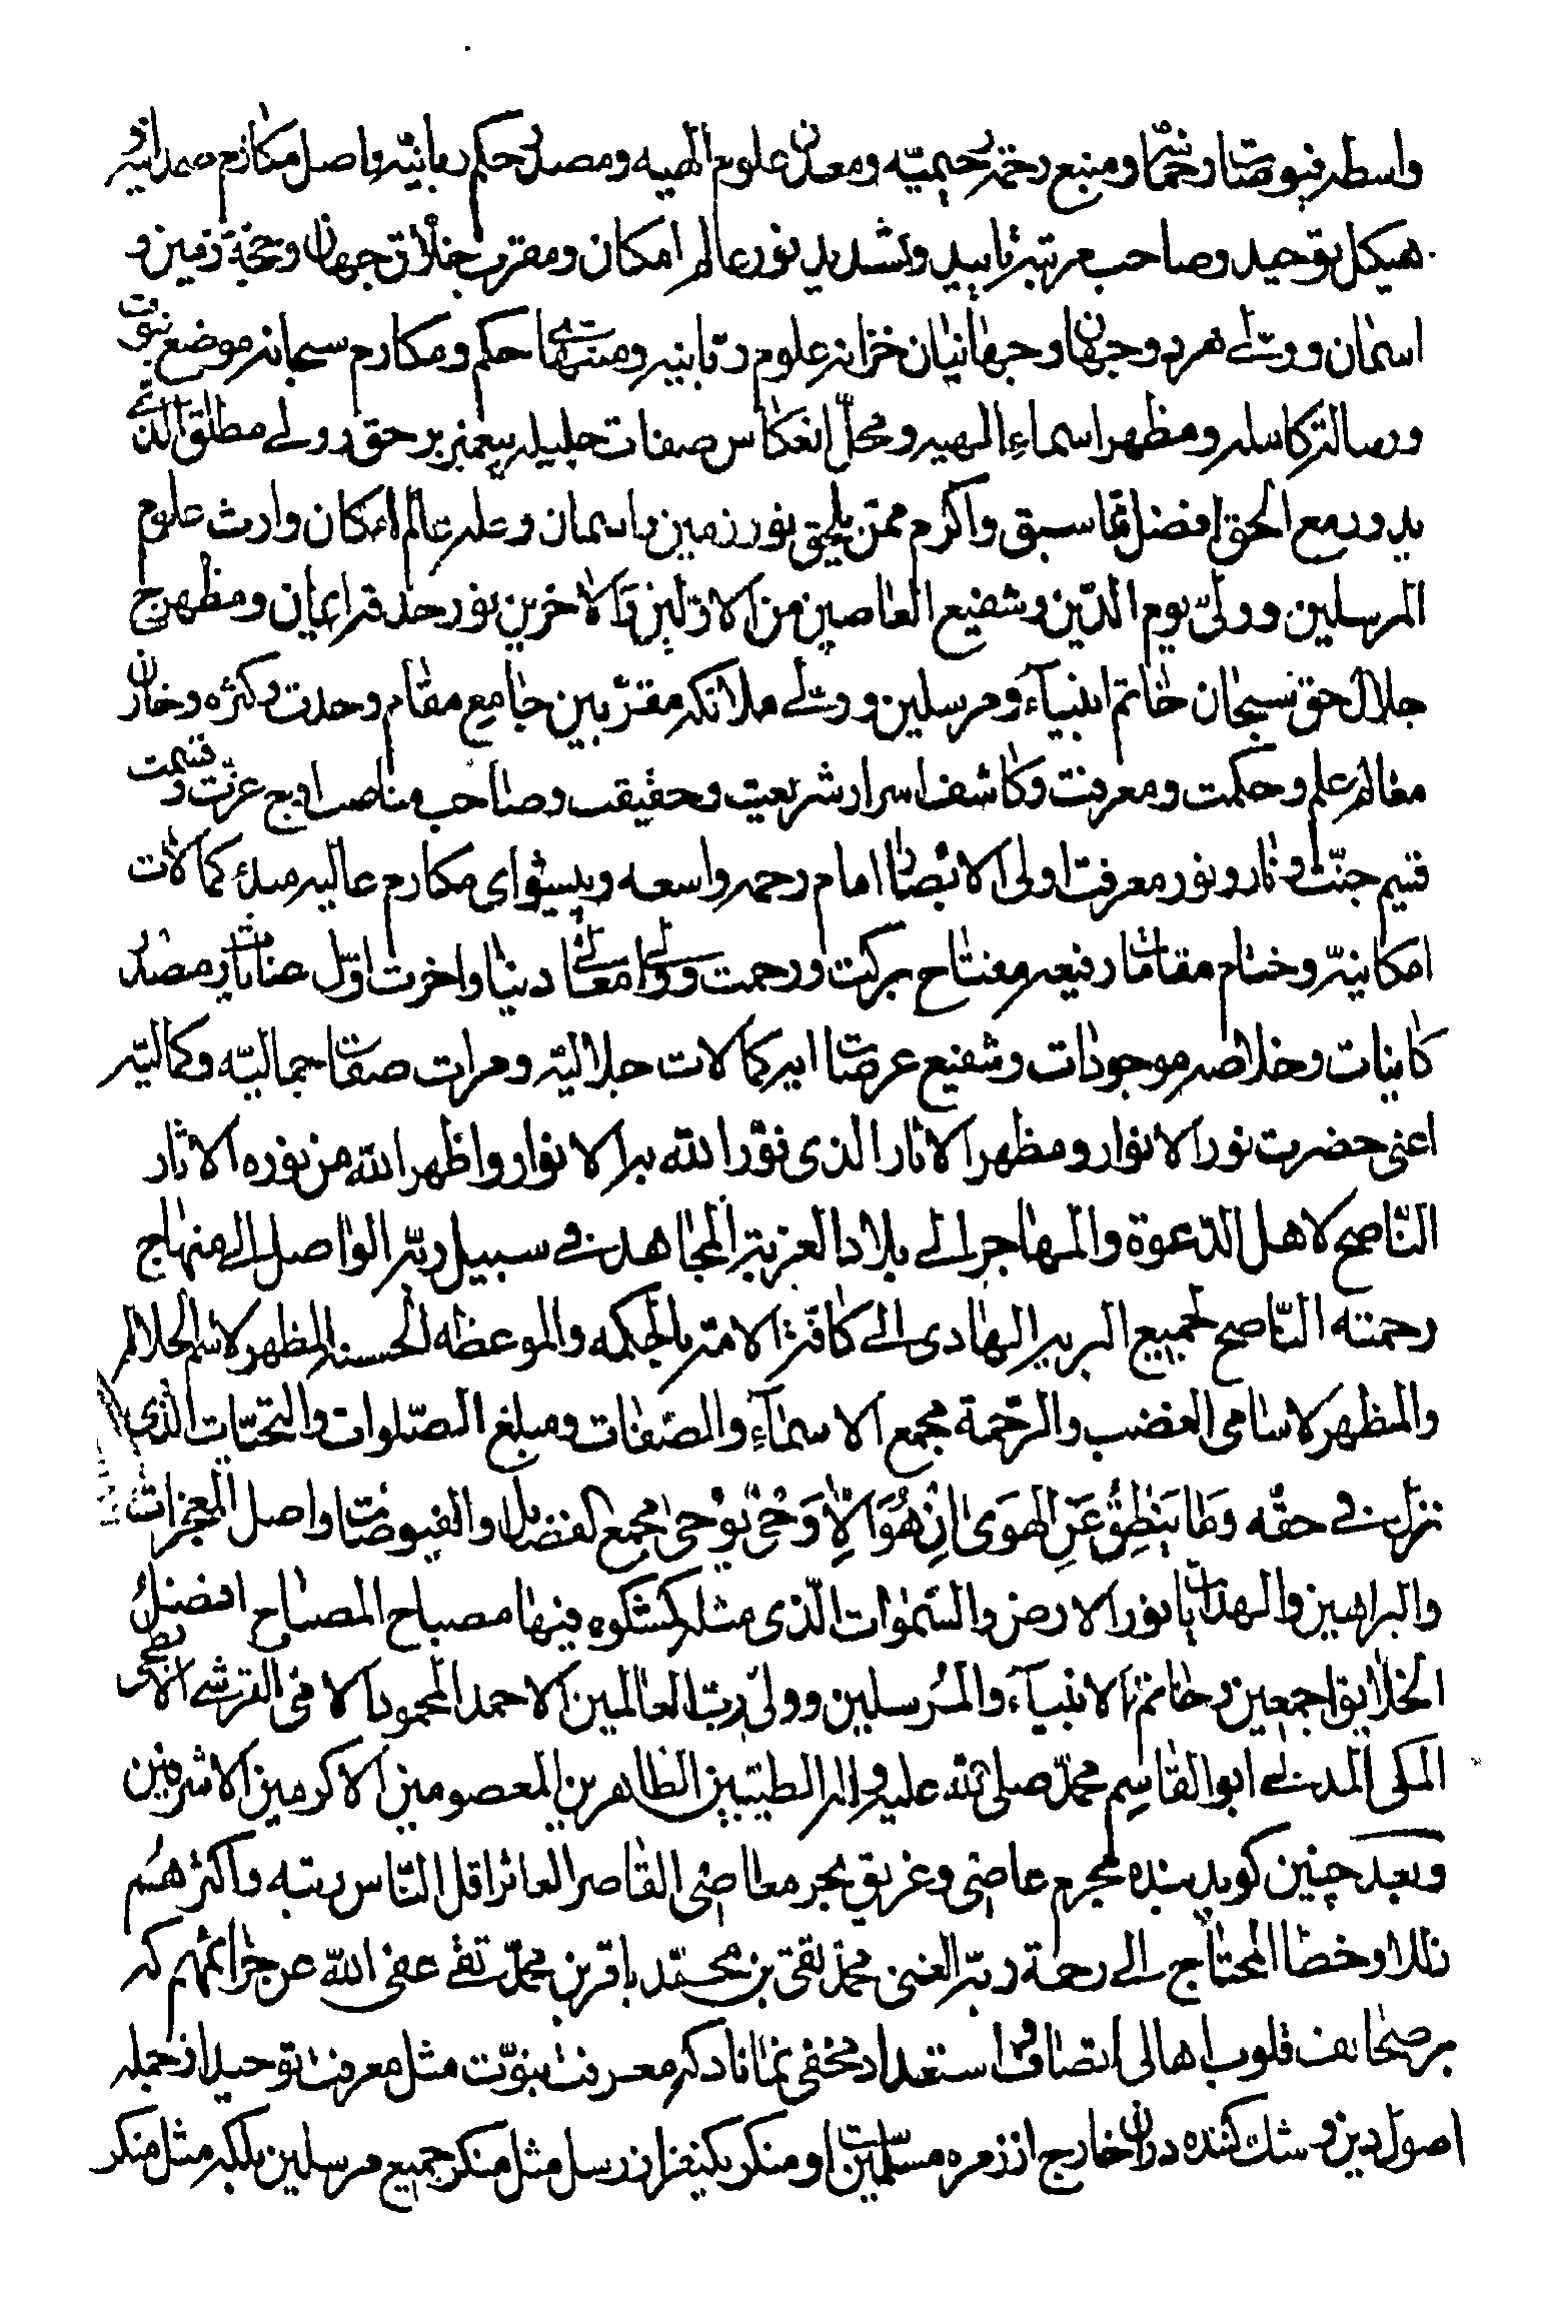 واسطه فیوضات رحمانیه و منبع رحمت رحیمیّه و معدن علوم الهیه و مصدر حکم ربانیّه و اصل مکارم صمدانیه و
هیکل توحید و صاحب مرتبه تایید و تشدید نور عالم امکان و مقرب خلاق جهان و حجّة زمین و
اسمان و ولی هر دو جهان و جهانیان خزانه علوم ربّانیه و منتهای حکم و مکارم سبحانه موضع نبوت
و رسالة کامله و مظهر اسماءِ الهیه و محلّ انعکاس صفات جلیله پیغمبر بر حق و ولی مطلق الّذی
یدور مع الحق افضل ممّا سبق و اکرم ممّن یلحق نور زمین و اسمان و علة عالم امکان وارث علوم
المرسلین و ولیّ یوم الدّین و شفیع العاصین من الاوّلین و الاخرین نور حدقه اعیان و مظهر
جلال حق سبحان خاتم انبیآء و مرسلین و ولی ملائکه مقرّبین جامع مقام وحدت و کثره و خازن
معالم علم و حکمت و معرفت و کاشف اسرار شریعت و حقیقت و صاحب مناصب اوج عزّت و
قسیم جنّت و نار و نور معرفت اولی الابصار امام رحمه واسعه و پیشوای مکارم عالیه مبدء کمالات
امکانیّه و ختام مقامات رفیعه مفتاح برکت و رحمت و ولی دنیا و اخرت اوّل مصدر
کاینات و خلاصه موجودات و شفیع عرصات کمالات جلالیّه و مرات صفات جمالیّه و کمالیّه
اعنی حضرت نور الانوار و مظهر الاثار الذی نوّر اللّه به الانوار و اظهر اللّه من نوره الاثار
النّاصح لاهل الدّعوة و المهاجر الی بلاد الغربة المجاهد فی سبیل ربّه الواصل الی منهاج
رحمته النّاصح لجمیع البریه الهادی الی کافّة الامّة بالحکمه و الموعظه الحسنه المظهر لاسم
و المظهر لاسامی الغضب و الرّحمة مجمع الاسمآءِ و الصّفات و مبلغ الصّلوات و التحیّات الذی
نزل فی حقّه وَمَا یَنْطِقُ عَنِ الهَوَیٰ اِنْ هُوَ اِلاّ وَحْیٌ یُوْحیٰ مجمع الفضایل و الفیوضات و اصل المعجزات
و البراهین و الهدایات نور الارض و السّموات الّذی مثله کمشکوه فیها مصباح المصباح افضل
الخلایق اجمعین و خاتم الانبیآء و المُرسلین و ولیّ ربّ العالمین الاحمد المحمود الامّی القرشی الابطحی
المکی المدنی ابو القاسِم محمّد صلی اللّه علیه و اله الطیّبین الطّاهرین المعصومین الاکرمین الاشرفین
و بعد چنین کوید بنده مجرم عاصی و غریق بحر معاصی القاصر العاثر اقل النّاس رتبه و اکثرهُم
زللا و خطا المحتاج الی رحمة ربّه الغنی محمّد تقی بن محمّد باقر بن محمّد تقی عفی اللّه عن جرائمهم که
بر صحایف قلوب اهالی انصاف و استعداد مخفی نماناد که معرفت نبوّت مثل معرفت توحید از جمله
اصول دین و شک کننده در ان خارج از زمره مسلمین است و منکر یکنفر از رسل مثل منکر جمیع مرسلین بلکه مثل منکر